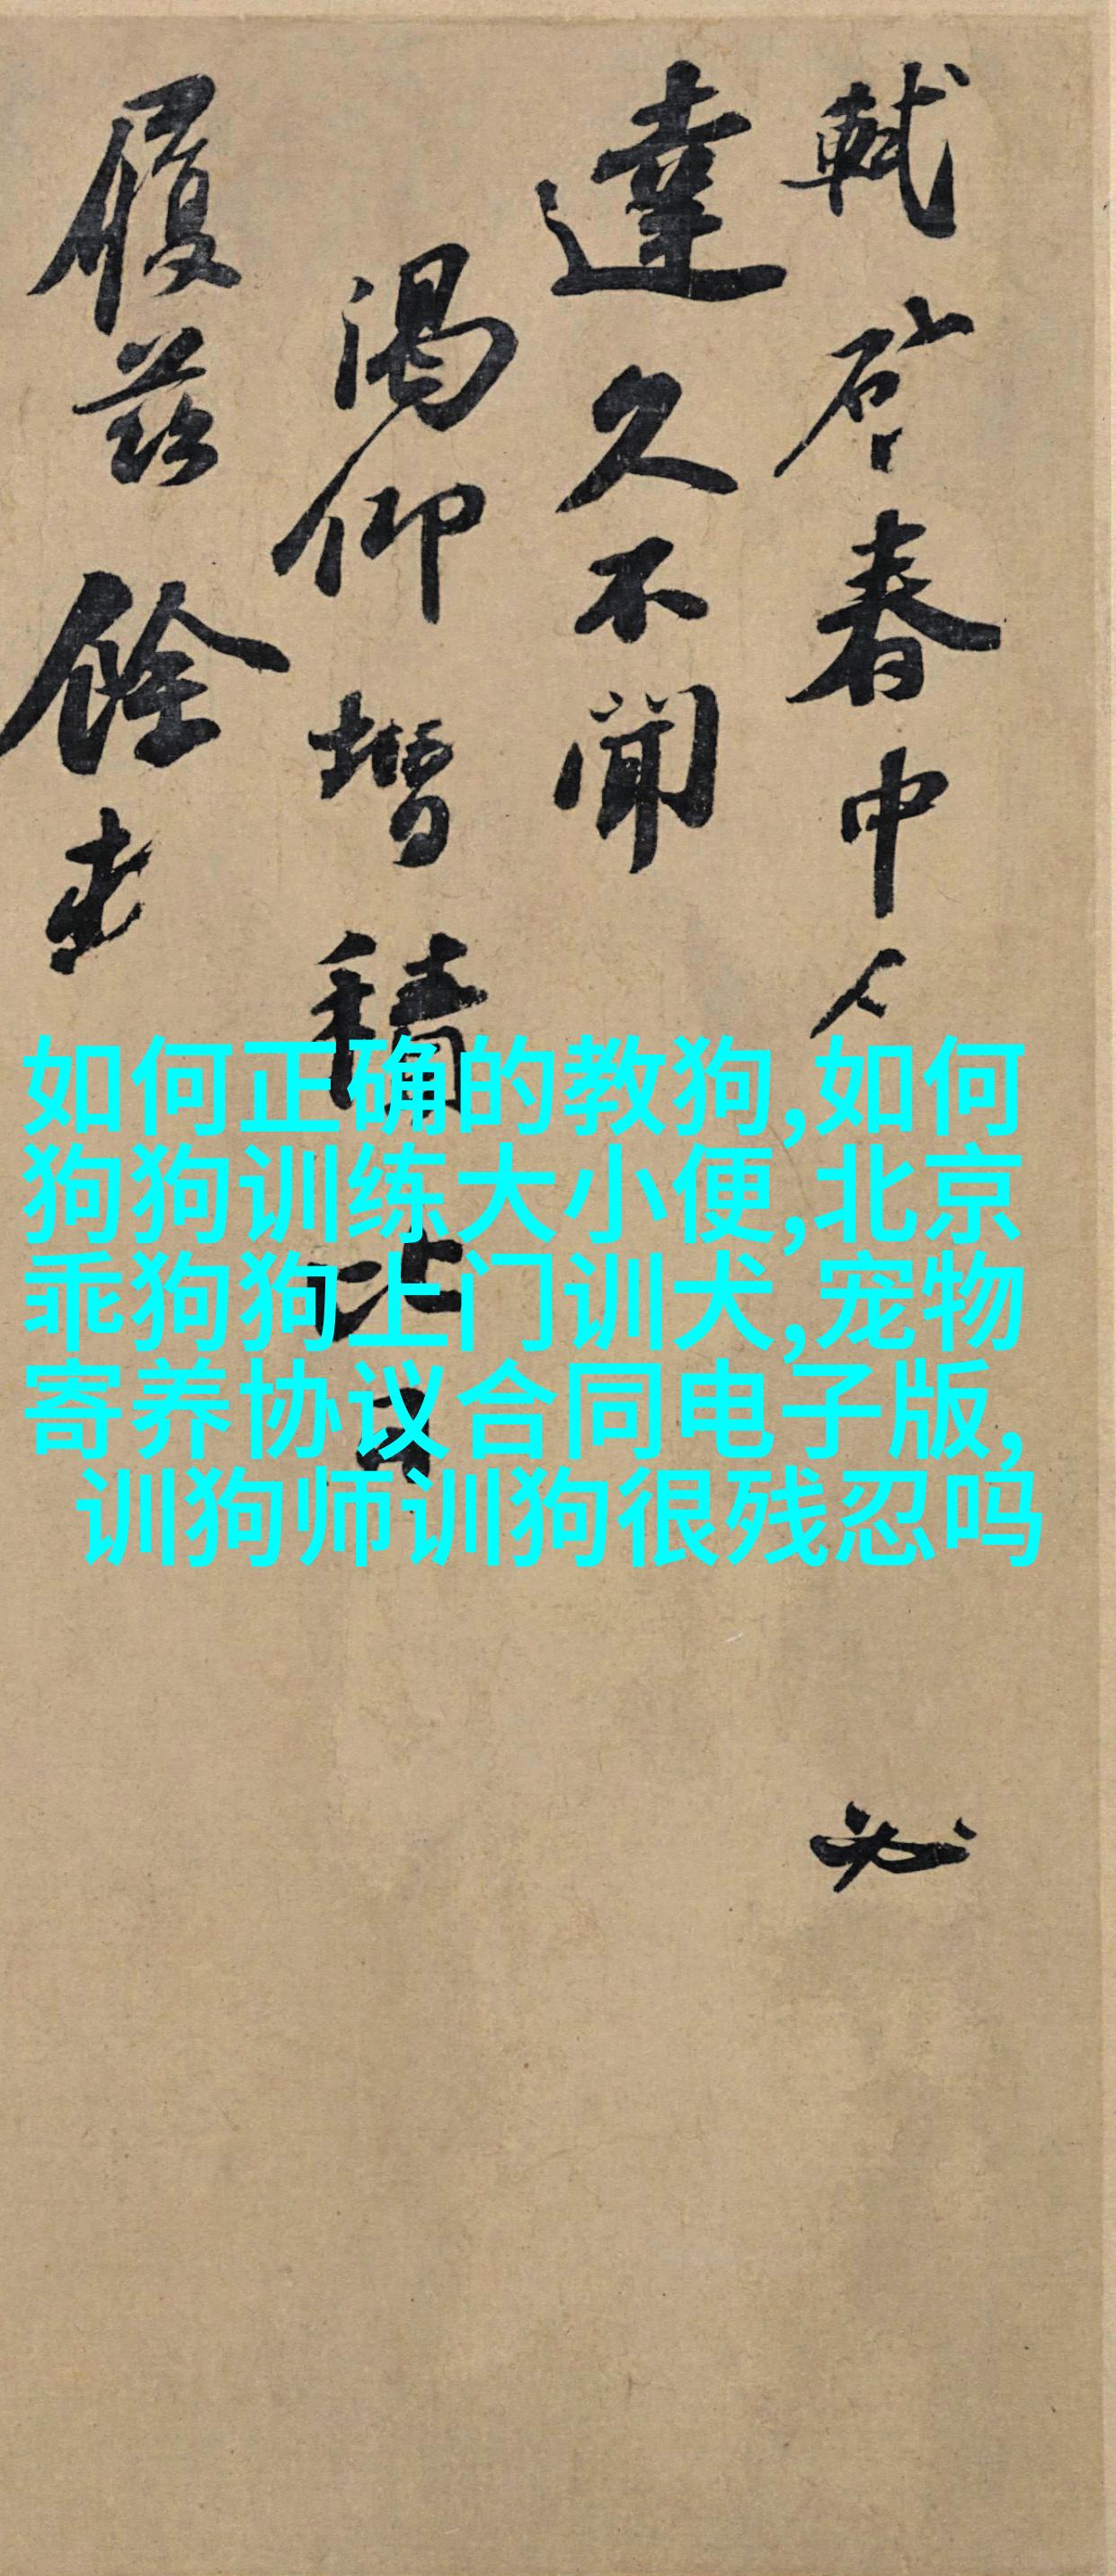 軾啓春中人必
達久不聞
渴仰增積比日
履茲餘
如何正确的教狗,如何
狗狗训练大小便,北京
乖狗狗上门训犬,宠物
寄养协议合同电子版,
训狗师训狗很残忍吗